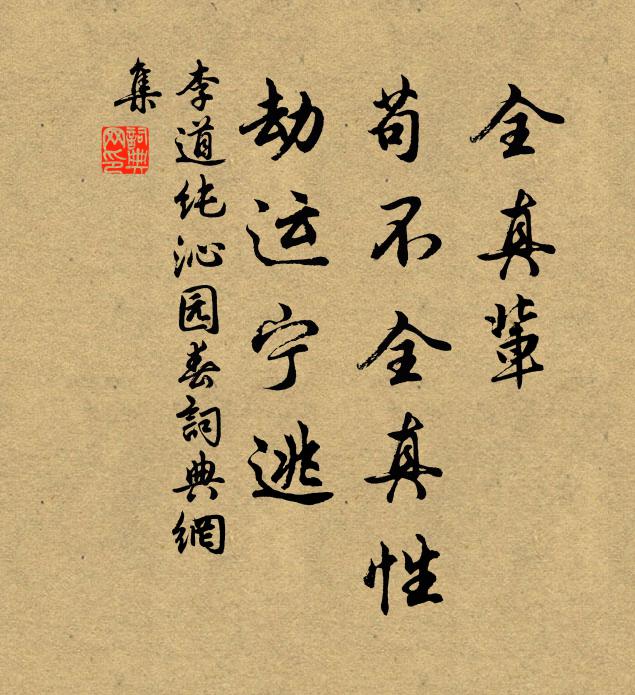 全真辈
苟不全真性
劫运宁逃
李道纯沁园春詞典網
集
詞典网印